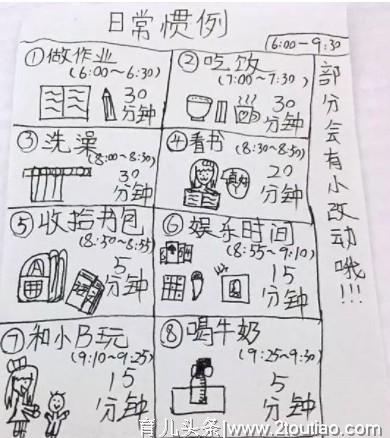 日常惯例
6:00-9:30
①做作业
(6:00~6:30)
30
分钟
②吃饭
(7:00~7:30)
30
分钟
③洗澡
(8:00~8:30)
30
分钟
④看书
(8:30~8:50)
20
分钟
⑤收拾书包
(8:50~8:55)
5
分钟
⑥娱乐时间
(8:55~9:10)
15
分钟
⑦和小B玩
(9:10~9:25)
15
分钟
⑧喝牛奶
(9:25~9:30)
5
分钟
部分会有小改动哦!!!
育儿头条/www.2toutiao.com